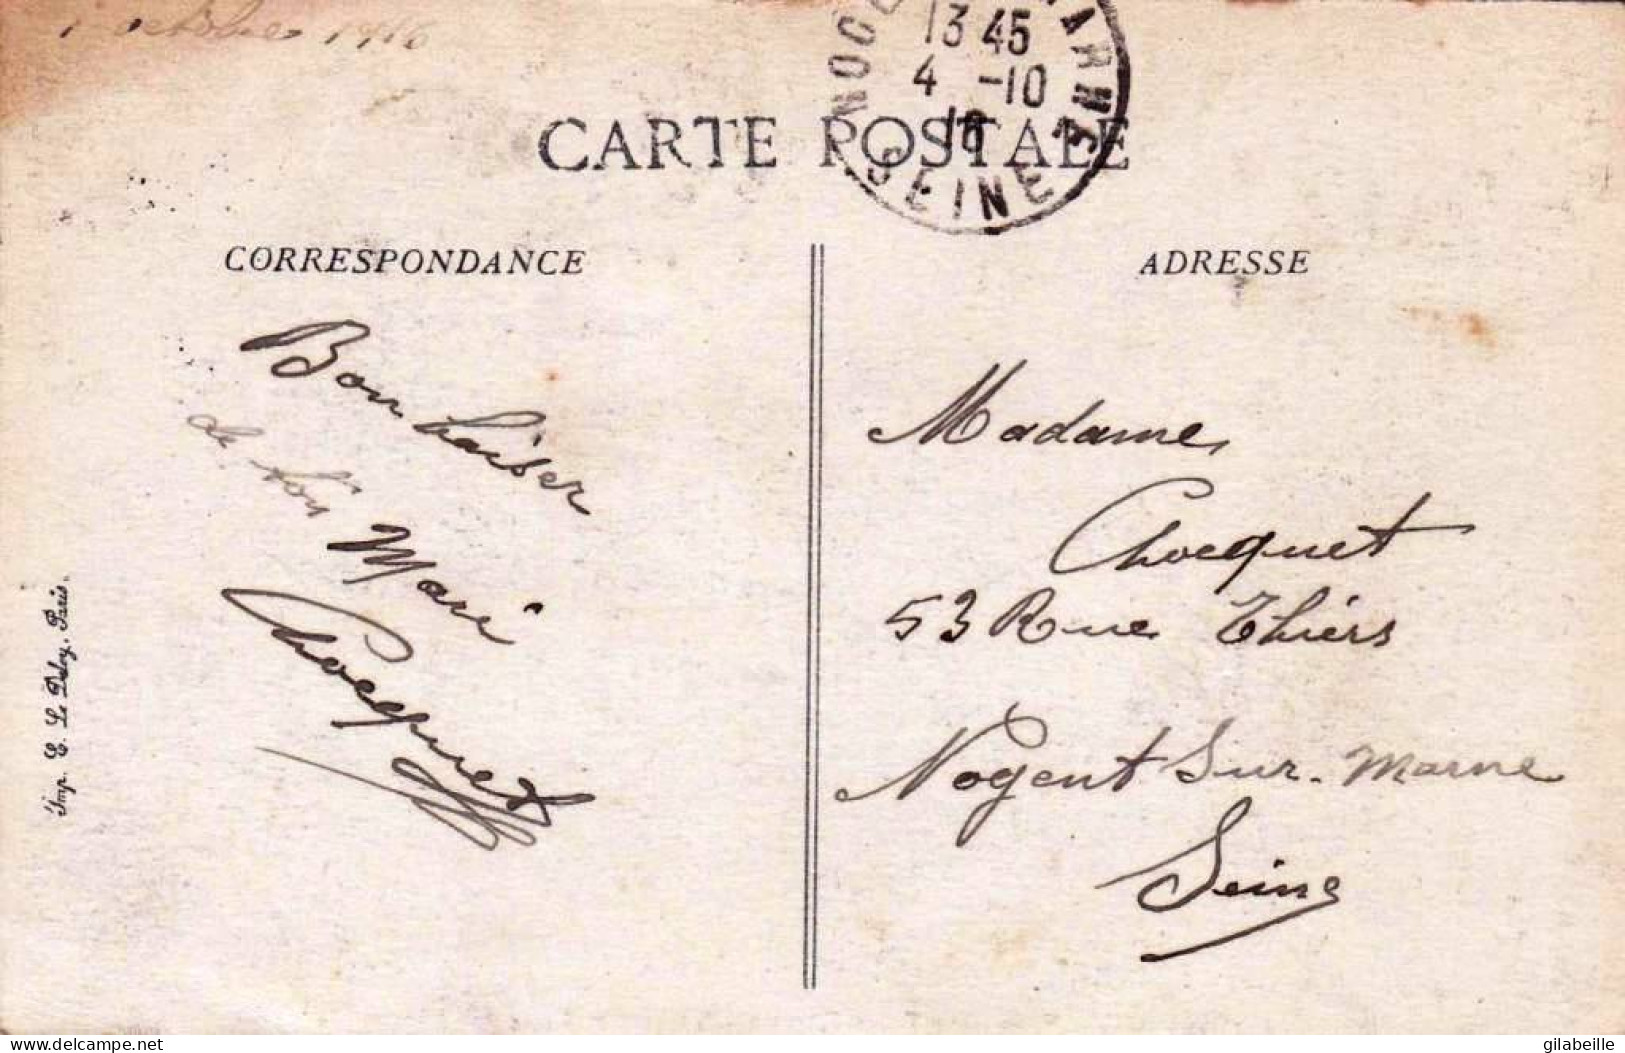 1 octobre 1916
13 45
4 -10
16
NOGE ARNE
SEINE
CARTE POSTALE
CORRESPONDANCE
ADRESSE
Bon baiser
de ton Mari
Chocquet
Madame
Chocquet
53 Rue Thiers
Nogent Sur-Marne
Seine
Imp. E. Le Deley, Paris.
www.delcampe.net
gilabeille